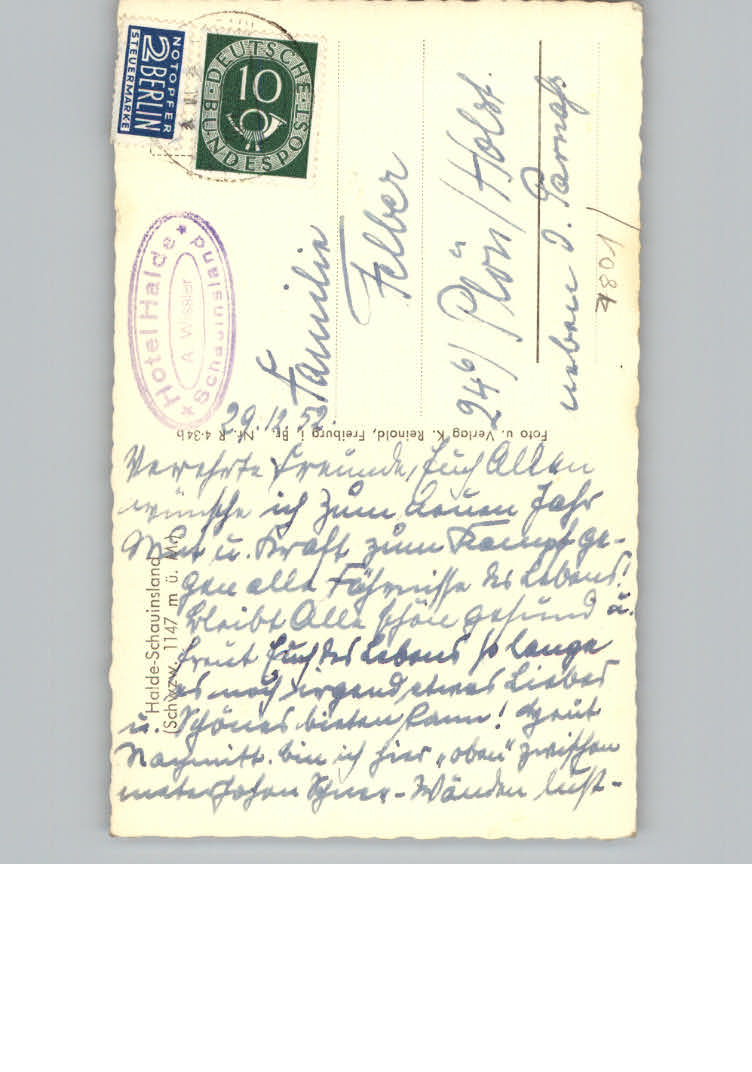 NOTOPFER
2 BERLIN
STEUERMARKE
DEUTSCHE
10
BUNDESPOST
Hotel Halde
A. Wissler
Schauinsland
Familie
Felber
24b / Plön / Holst.
neben d. Parnaß
4801
Foto u. Verlag K. Reinold, Freiburg i. Br. Nr. R 4-34b
Halde-Schauinsland
(Schwzw. 1147 m ü. M.)
29.12.52.
Verehrte Freunde, Euch Allen
wünsche ich zum neuen Jahr
Mut u. Kraft zum Kampf ge-
gen alle Fährnisse des Lebens!
Bleibt Alle schön gesund u.
freut Euch des Lebens so lange
es noch irgend etwas Liebes
u. Schönes bieten kann! Heut
Nachmitt. bin ich hier „oben" zwischen
meterhohen Schnee-Wänden lust-